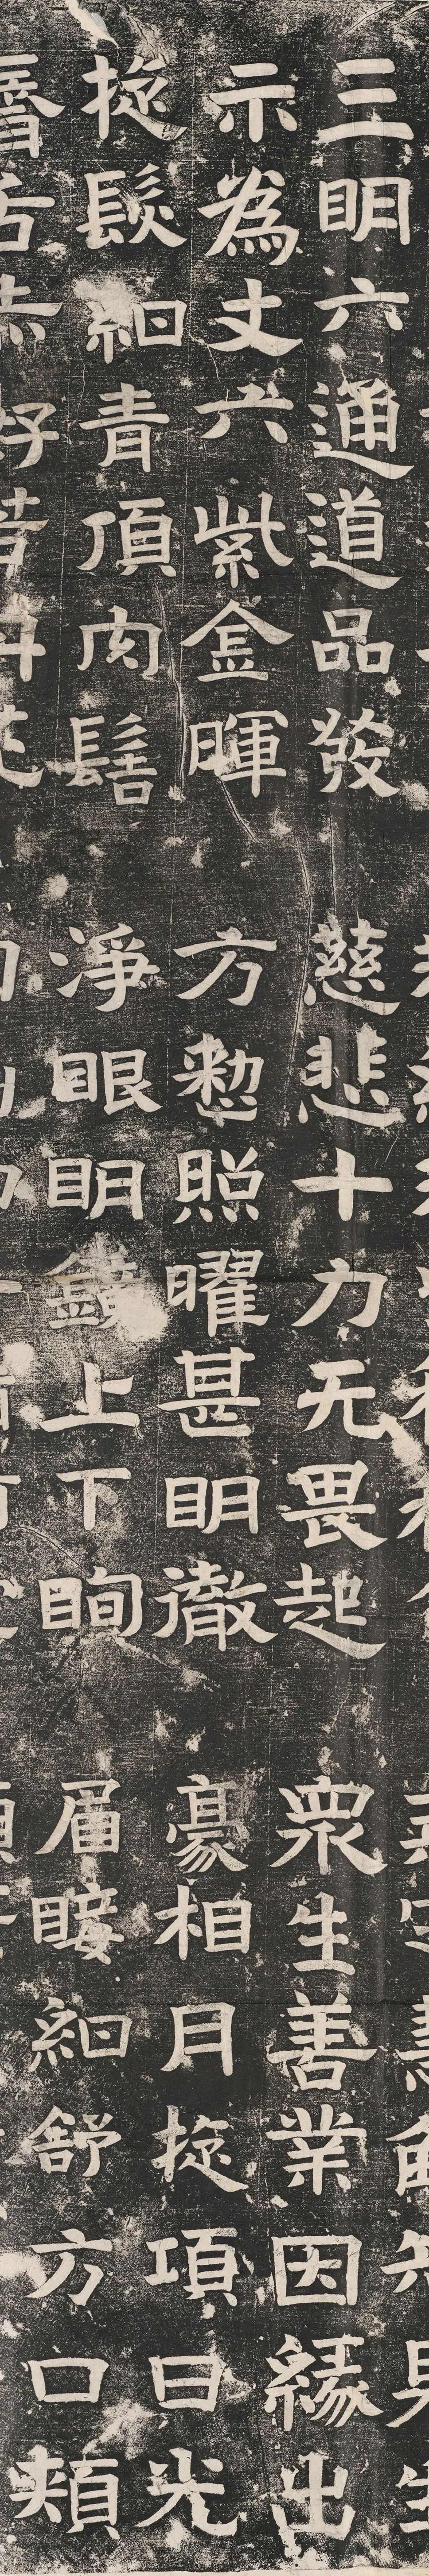 三明六通道品發慈悲十力无畏起衆生善業因緣出
示為丈六紫金暉方整照曜甚明徹豪相月旋項日光
旋髮紺青頂肉髻淨眼明鏡上下眴眉睫紺舒方口頰